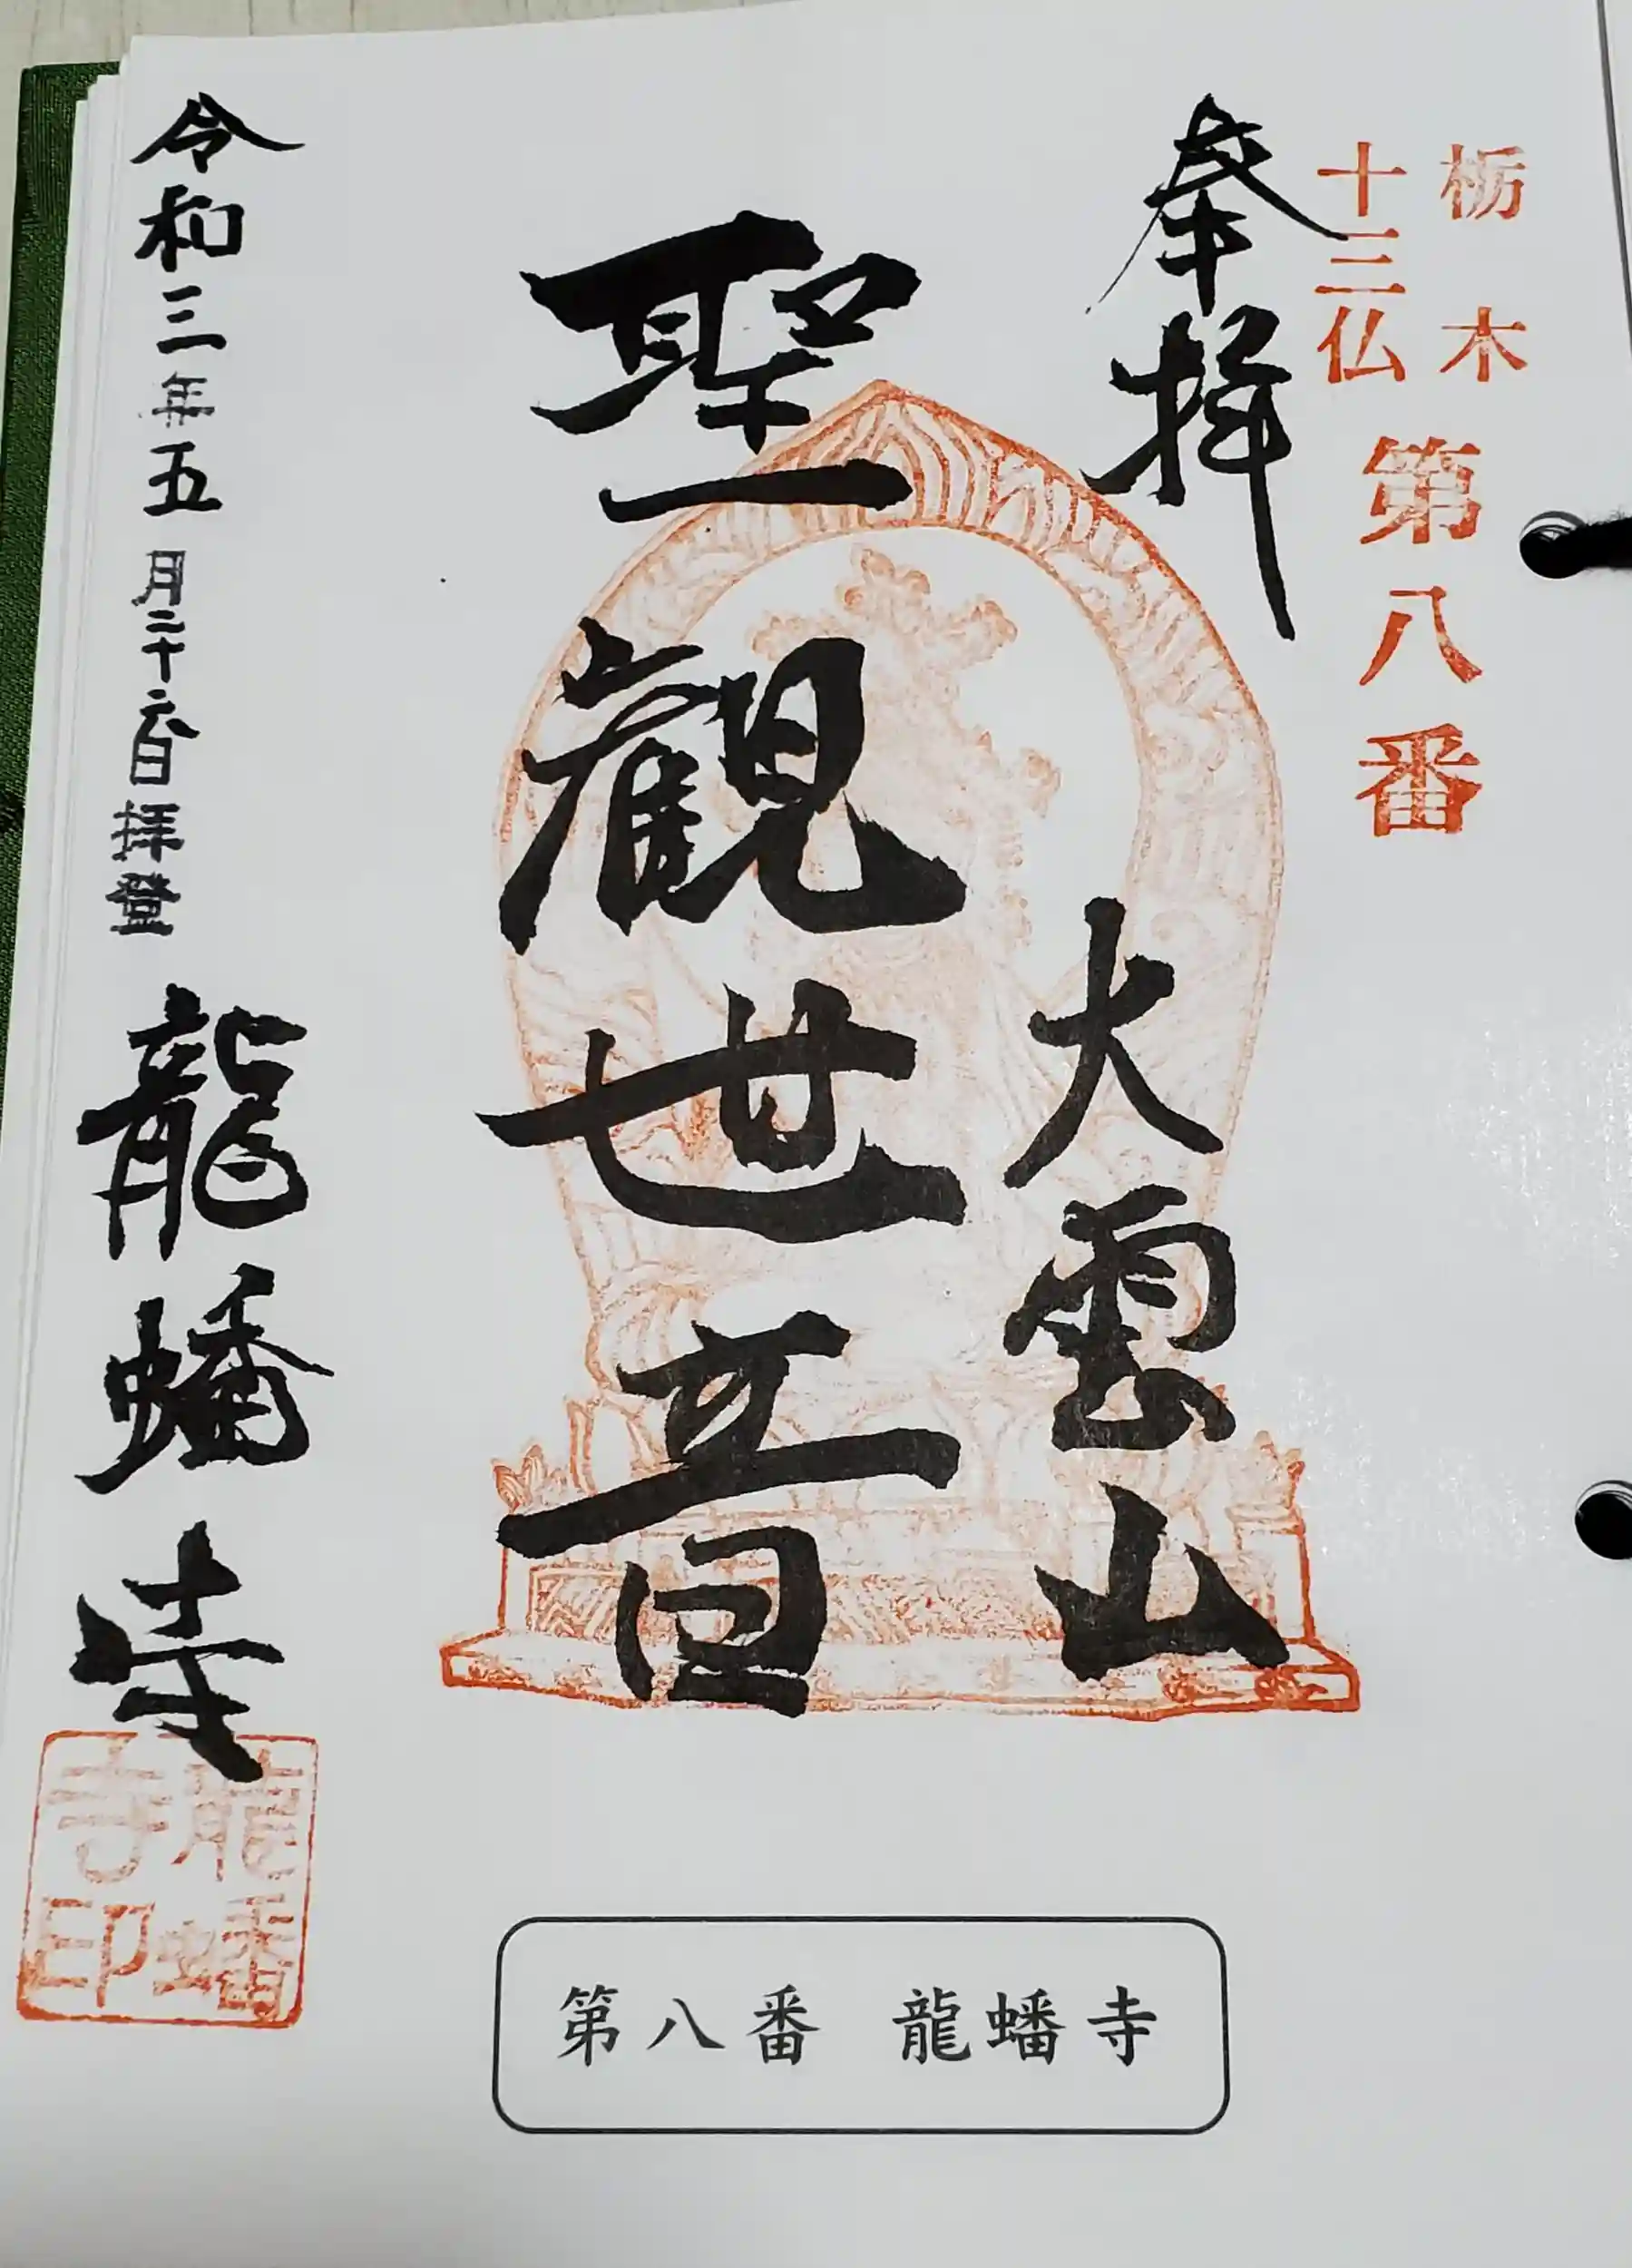 栃木
十三仏
第八番
奉拝
大雲山
聖觀世音
令和三年五月二十六日拝登
龍蟠寺
龍蟠寺印
第八番 龍蟠寺